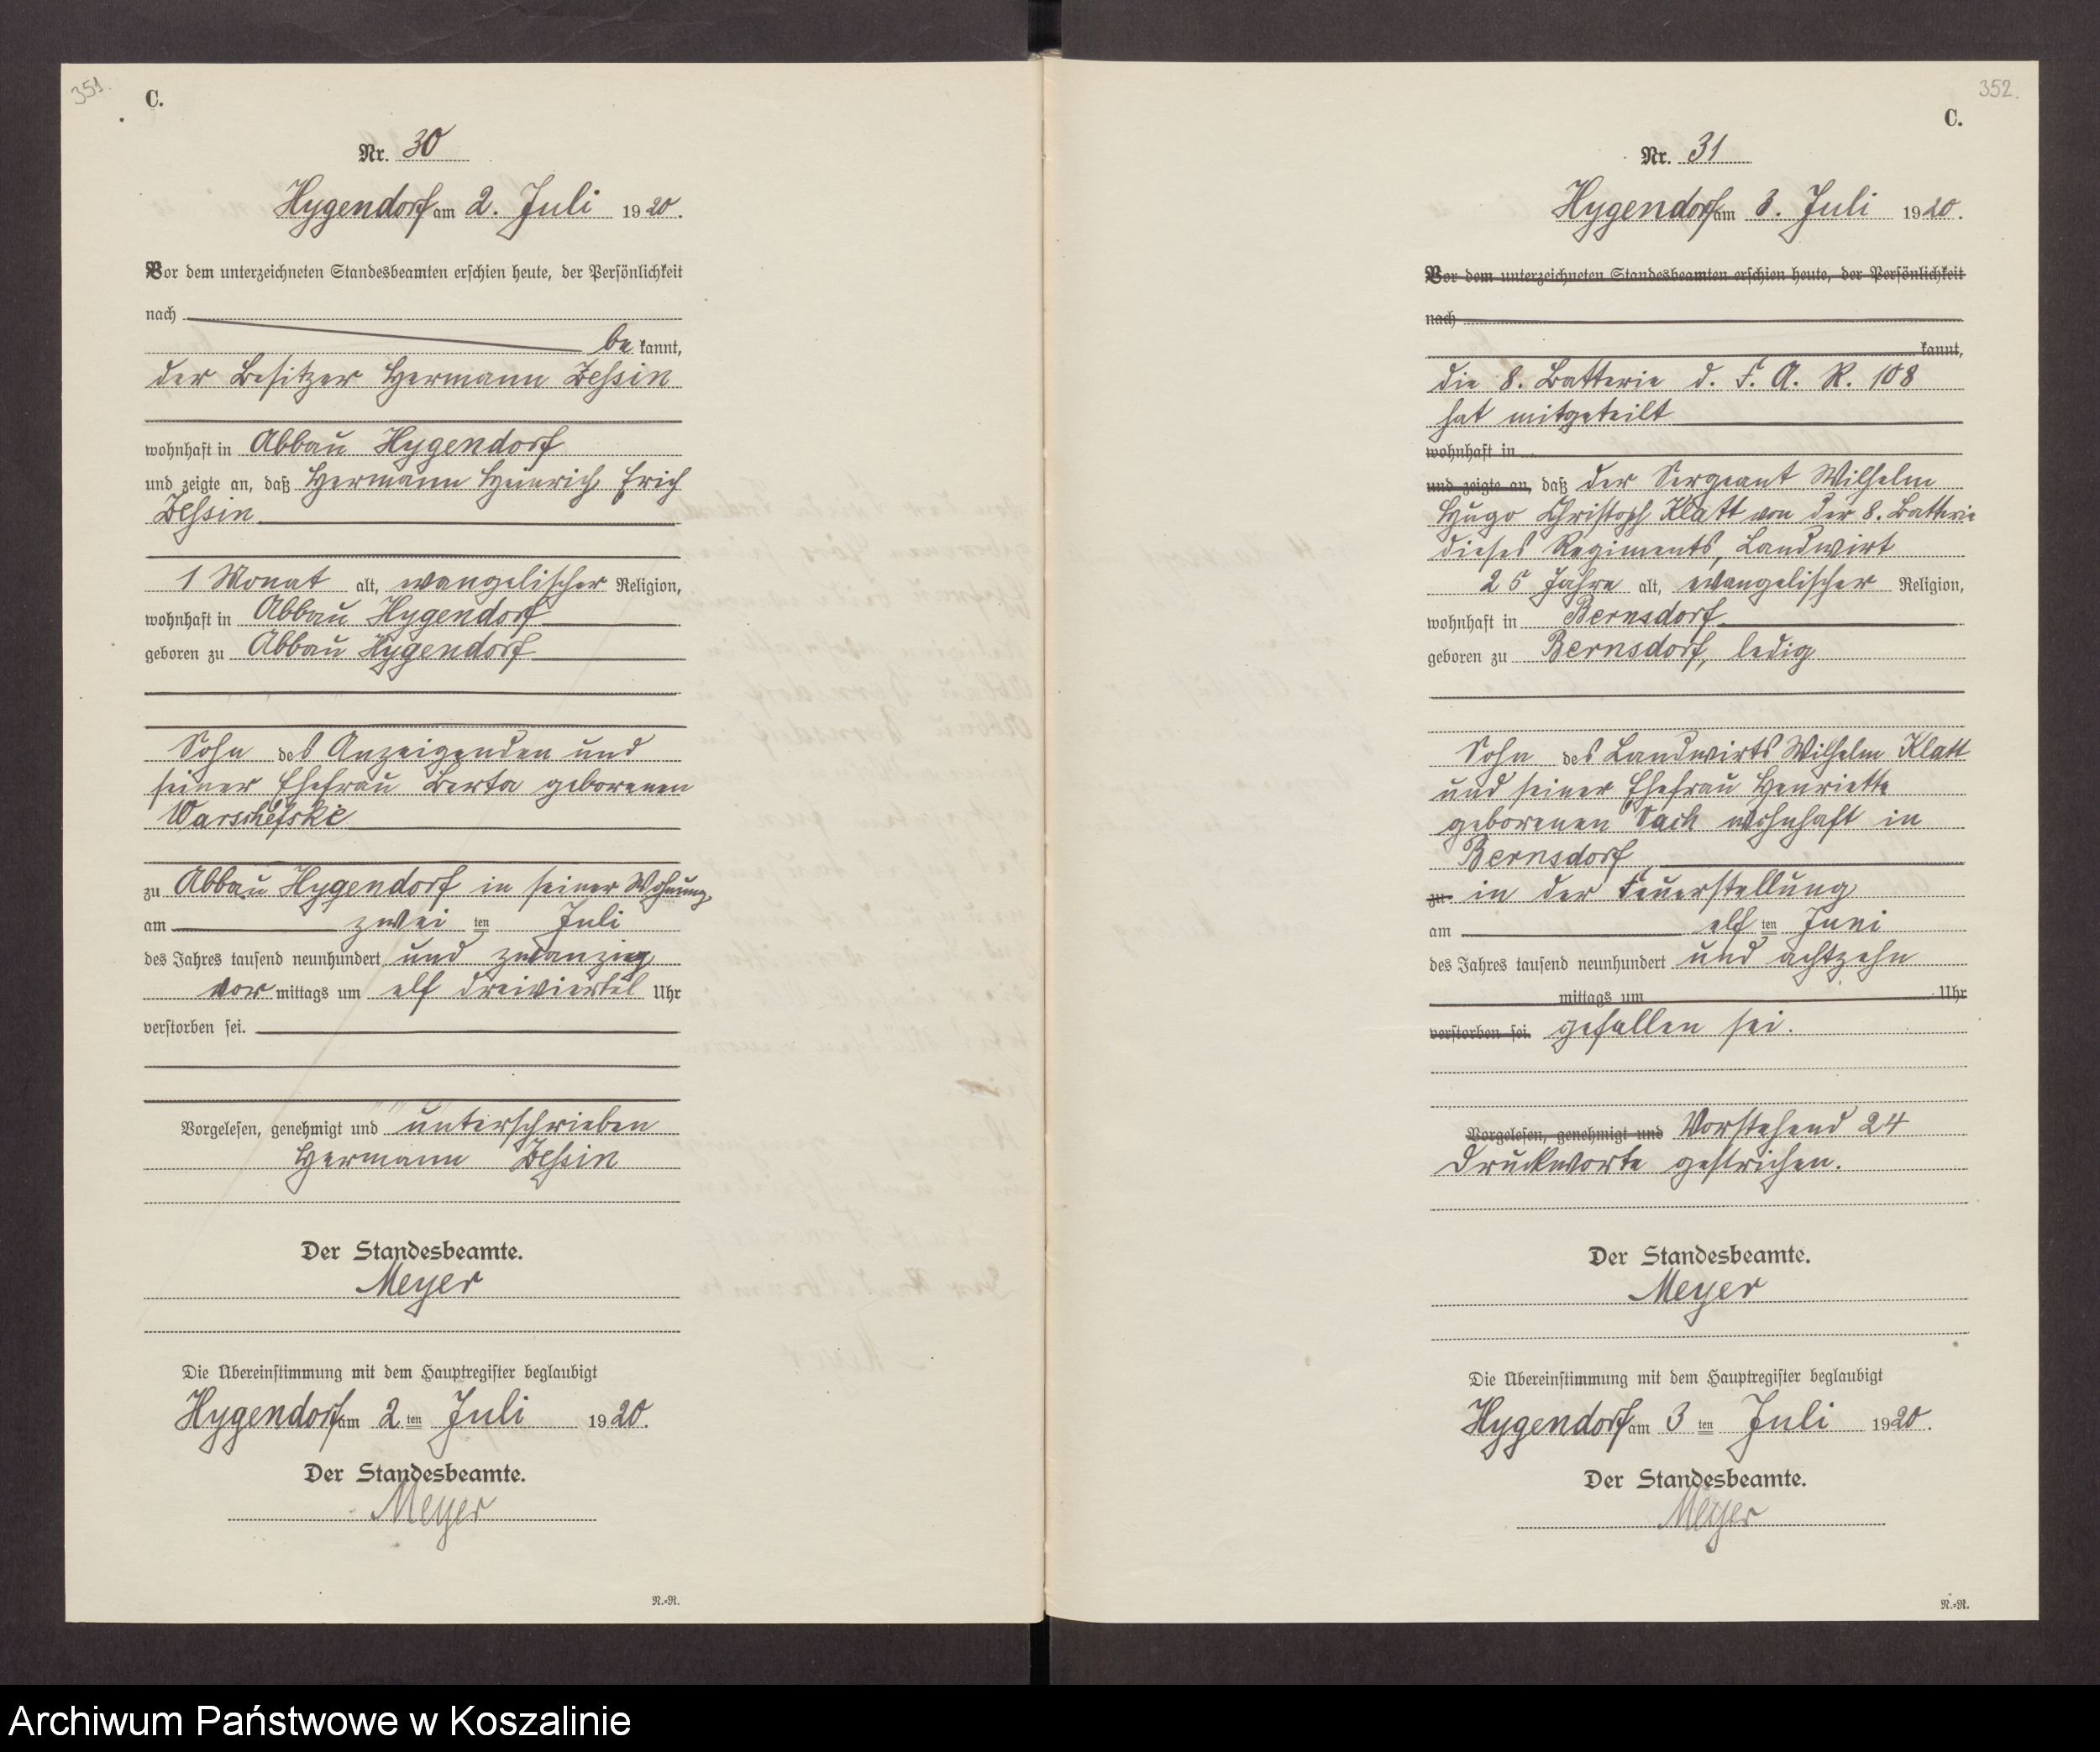 351.
C.
Nr. 30
Hygendorf am 2. Juli 1920.
Vor dem unterzeichneten Standesbeamten erschien heute, der Persönlichkeit
nach
be kannt,
der Besitzer Hermann Zessin
wohnhaft in Abbau Hygendorf
und zeigte an, daß Hermann Heinrich Erich
Zessin
1 Monat alt, evangelischer Religion,
wohnhaft in Abbau Hygendorf
geboren zu Abbau Hygendorf
Sohn des Anzeigenden und
seiner Ehefrau Berta geborenen
Warschefske
zu Abbau Hygendorf in seiner Wohnung
am zwei ten Juli
des Jahres tausend neunhundert und zwanzig
vor mittags um elf dreiviertel Uhr
verstorben sei.
Vorgelesen, genehmigt und unterschrieben
Hermann Zessin
Der Standesbeamte.
Meyer
Die Übereinstimmung mit dem Hauptregister beglaubigt
Hygendorf am 2 ten Juli 1920.
Der Standesbeamte.
Meyer
N.-R.
352.
C.
Nr. 31
Hygendorf am 3. Juli 1920.
Vor dem unterzeichneten Standesbeamten erschien heute, der Persönlichkeit
nach
kannt,
die 8. Batterie d. F. A. R. 108
hat mitgeteilt
wohnhaft in
und zeigte an, daß der Sergeant Wilhelm
Hugo Christoph Klatt von der 8. Batterie
dieses Regiments, Landwirt
25 Jahre alt, evangelischer Religion,
wohnhaft in Bernsdorf
geboren zu Bernsdorf, ledig
Sohn des Landwirts Wilhelm Klatt
und seiner Ehefrau Henriette
geborenen Sach wohnhaft in
Bernsdorf
zu in der Feuerstellung
am elf ten Juni
des Jahres tausend neunhundert und achtzehn
mittags um Uhr
verstorben sei. gefallen sei.
Vorgelesen, genehmigt und Vorstehend 24
Druckworte gestrichen.
Der Standesbeamte.
Meyer
Die Übereinstimmung mit dem Hauptregister beglaubigt
Hygendorf am 3 ten Juli 1920.
Der Standesbeamte.
Meyer
N.-R.
Archiwum Państwowe w Koszalinie